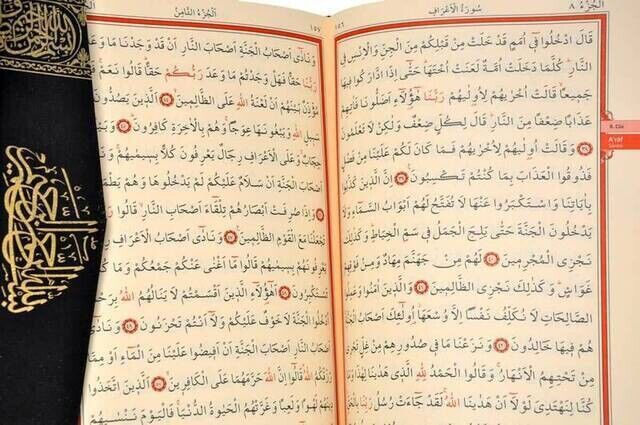 اَلْجُزْءُ ٨
سُورَةُ الْاَعْرَافِ
قَالَ ادْخُلُوا فٖٓي اُمَمٍ قَدْ خَلَتْ مِنْ قَبْلِكُمْ مِنَ الْجِنِّ وَالْاِنْسِ فِي
النَّارِ كُلَّمَا دَخَلَتْ اُمَّةٌ لَعَنَتْ اُخْتَهَا حَتّٰٓى اِذَا ادَّارَكُوا فٖيهَا
جَمٖيعًا قَالَتْ اُخْرٰيهُمْ لِاُو۫لٰيهُمْ رَبَّنَا هٰٓؤُ۬لَٓاءِ اَضَلُّونَا فَاٰتِهِمْ
عَذَابًا ضِعْفًا مِنَ النَّارِ قَالَ لِكُلٍّ ضِعْفٌ وَلٰكِنْ لَا تَعْلَمُونَ
٣٨ وَقَالَتْ اُو۫لٰيهُمْ لِاُخْرٰيهُمْ فَمَا كَانَ لَكُمْ عَلَيْنَا مِنْ فَضْلٍ
فَذُوقُوا الْعَذَابَ بِمَا كُنْتُمْ تَكْسِبُونَ ٣٩ اِنَّ الَّذٖينَ كَذَّبُوا
بِاٰيَاتِنَا وَاسْتَكْبَرُوا عَنْهَا لَا تُفَتَّحُ لَهُمْ اَبْوَابُ السَّمَٓاءِ وَلَا
يَدْخُلُونَ الْجَنَّةَ حَتّٰى يَلِجَ الْجَمَلُ فٖي سَمِّ الْخِيَاطِ وَكَذٰلِكَ
نَجْزِي الْمُجْرِمٖينَ ٤٠ لَهُمْ مِنْ جَهَنَّمَ مِهَادٌ وَمِنْ فَوْقِهِمْ
غَوَاشٍ وَكَذٰلِكَ نَجْزِي الظَّالِمٖينَ ٤١ وَالَّذٖينَ اٰمَنُوا وَعَمِلُوا
الصَّالِحَاتِ لَا نُكَلِّفُ نَفْسًا اِلَّا وُسْعَهَا اُو۬لٰٓئِكَ اَصْحَابُ الْجَنَّةِ
هُمْ فٖيهَا خَالِدُونَ ٤٢ وَنَزَعْنَا مَا فٖي صُدُورِهِمْ مِنْ غِلٍّ تَجْرٖي
مِنْ تَحْتِهِمُ الْاَنْهَارُ وَقَالُوا الْحَمْدُ لِلّٰهِ الَّذٖي هَدٰينَا لِهٰذَا وَمَا
كُنَّا لِنَهْتَدِيَ لَوْلَٓا اَنْ هَدٰينَا اللّٰهُ لَقَدْ جَٓاءَتْ رُسُلُ رَبِّنَا بِالْحَقِّ
8. Cüz
A'râf
Sûresi
اَلْجُزْءُ الثَّامِنُ
وَنَادٰٓى اَصْحَابُ الْجَنَّةِ اَصْحَابَ النَّارِ اَنْ قَدْ وَجَدْنَا مَا
رَبُّنَا حَقًّا فَهَلْ وَجَدْتُمْ مَا وَعَدَ رَبُّكُمْ حَقًّا قَالُوا نَعَمْ
مُؤَذِّنٌ بَيْنَهُمْ اَنْ لَعْنَةُ اللّٰهِ عَلَى الظَّالِمٖينَ ٤٤ اَلَّذٖينَ يَصُدُّونَ
سَبٖيلِ اللّٰهِ وَيَبْغُونَهَا عِوَجًا وَهُمْ بِالْاٰخِرَةِ كَافِرُونَ ٤٥
حِجَابٌ وَعَلَى الْاَعْرَافِ رِجَالٌ يَعْرِفُونَ كُلًّا بِسٖيمٰيهُمْ وَنَادَوْا
اَصْحَابَ الْجَنَّةِ اَنْ سَلَامٌ عَلَيْكُمْ لَمْ يَدْخُلُوهَا وَهُمْ يَطْمَعُونَ
وَاِذَا صُرِفَتْ اَبْصَارُهُمْ تِلْقَٓاءَ اَصْحَابِ النَّارِ قَالُوا رَبَّنَا
تَجْعَلْنَا مَعَ الْقَوْمِ الظَّالِمٖينَ ٤٧ وَنَادٰٓى اَصْحَابُ الْاَعْرَافِ
يَعْرِفُونَهُمْ بِسٖيمٰيهُمْ قَالُوا مَٓا اَغْنٰى عَنْكُمْ جَمْعُكُمْ وَمَا كُنْتُمْ
تَسْتَكْبِرُونَ ٤٨ اَهٰٓؤُ۬لَٓاءِ الَّذٖينَ اَقْسَمْتُمْ لَا يَنَالُهُمُ اللّٰهُ بِرَحْمَةٍ
اُدْخُلُوا الْجَنَّةَ لَا خَوْفٌ عَلَيْكُمْ وَلَٓا اَنْتُمْ تَحْزَنُونَ ٤٩ وَنَادٰٓى
النَّارِ اَصْحَابَ الْجَنَّةِ اَنْ اَفٖيضُوا عَلَيْنَا مِنَ الْمَٓاءِ اَوْ مِمَّا
رَزَقَكُمُ اللّٰهُ قَالُٓوا اِنَّ اللّٰهَ حَرَّمَهُمَا عَلَى الْكَافِرٖينَ ٥٠ اَلَّذٖينَ اتَّخَذُوا
دٖينَهُمْ لَهْوًا وَلَعِبًا وَغَرَّتْهُمُ الْحَيٰوةُ الدُّنْيَا فَالْيَوْمَ نَنْسٰيهُمْ